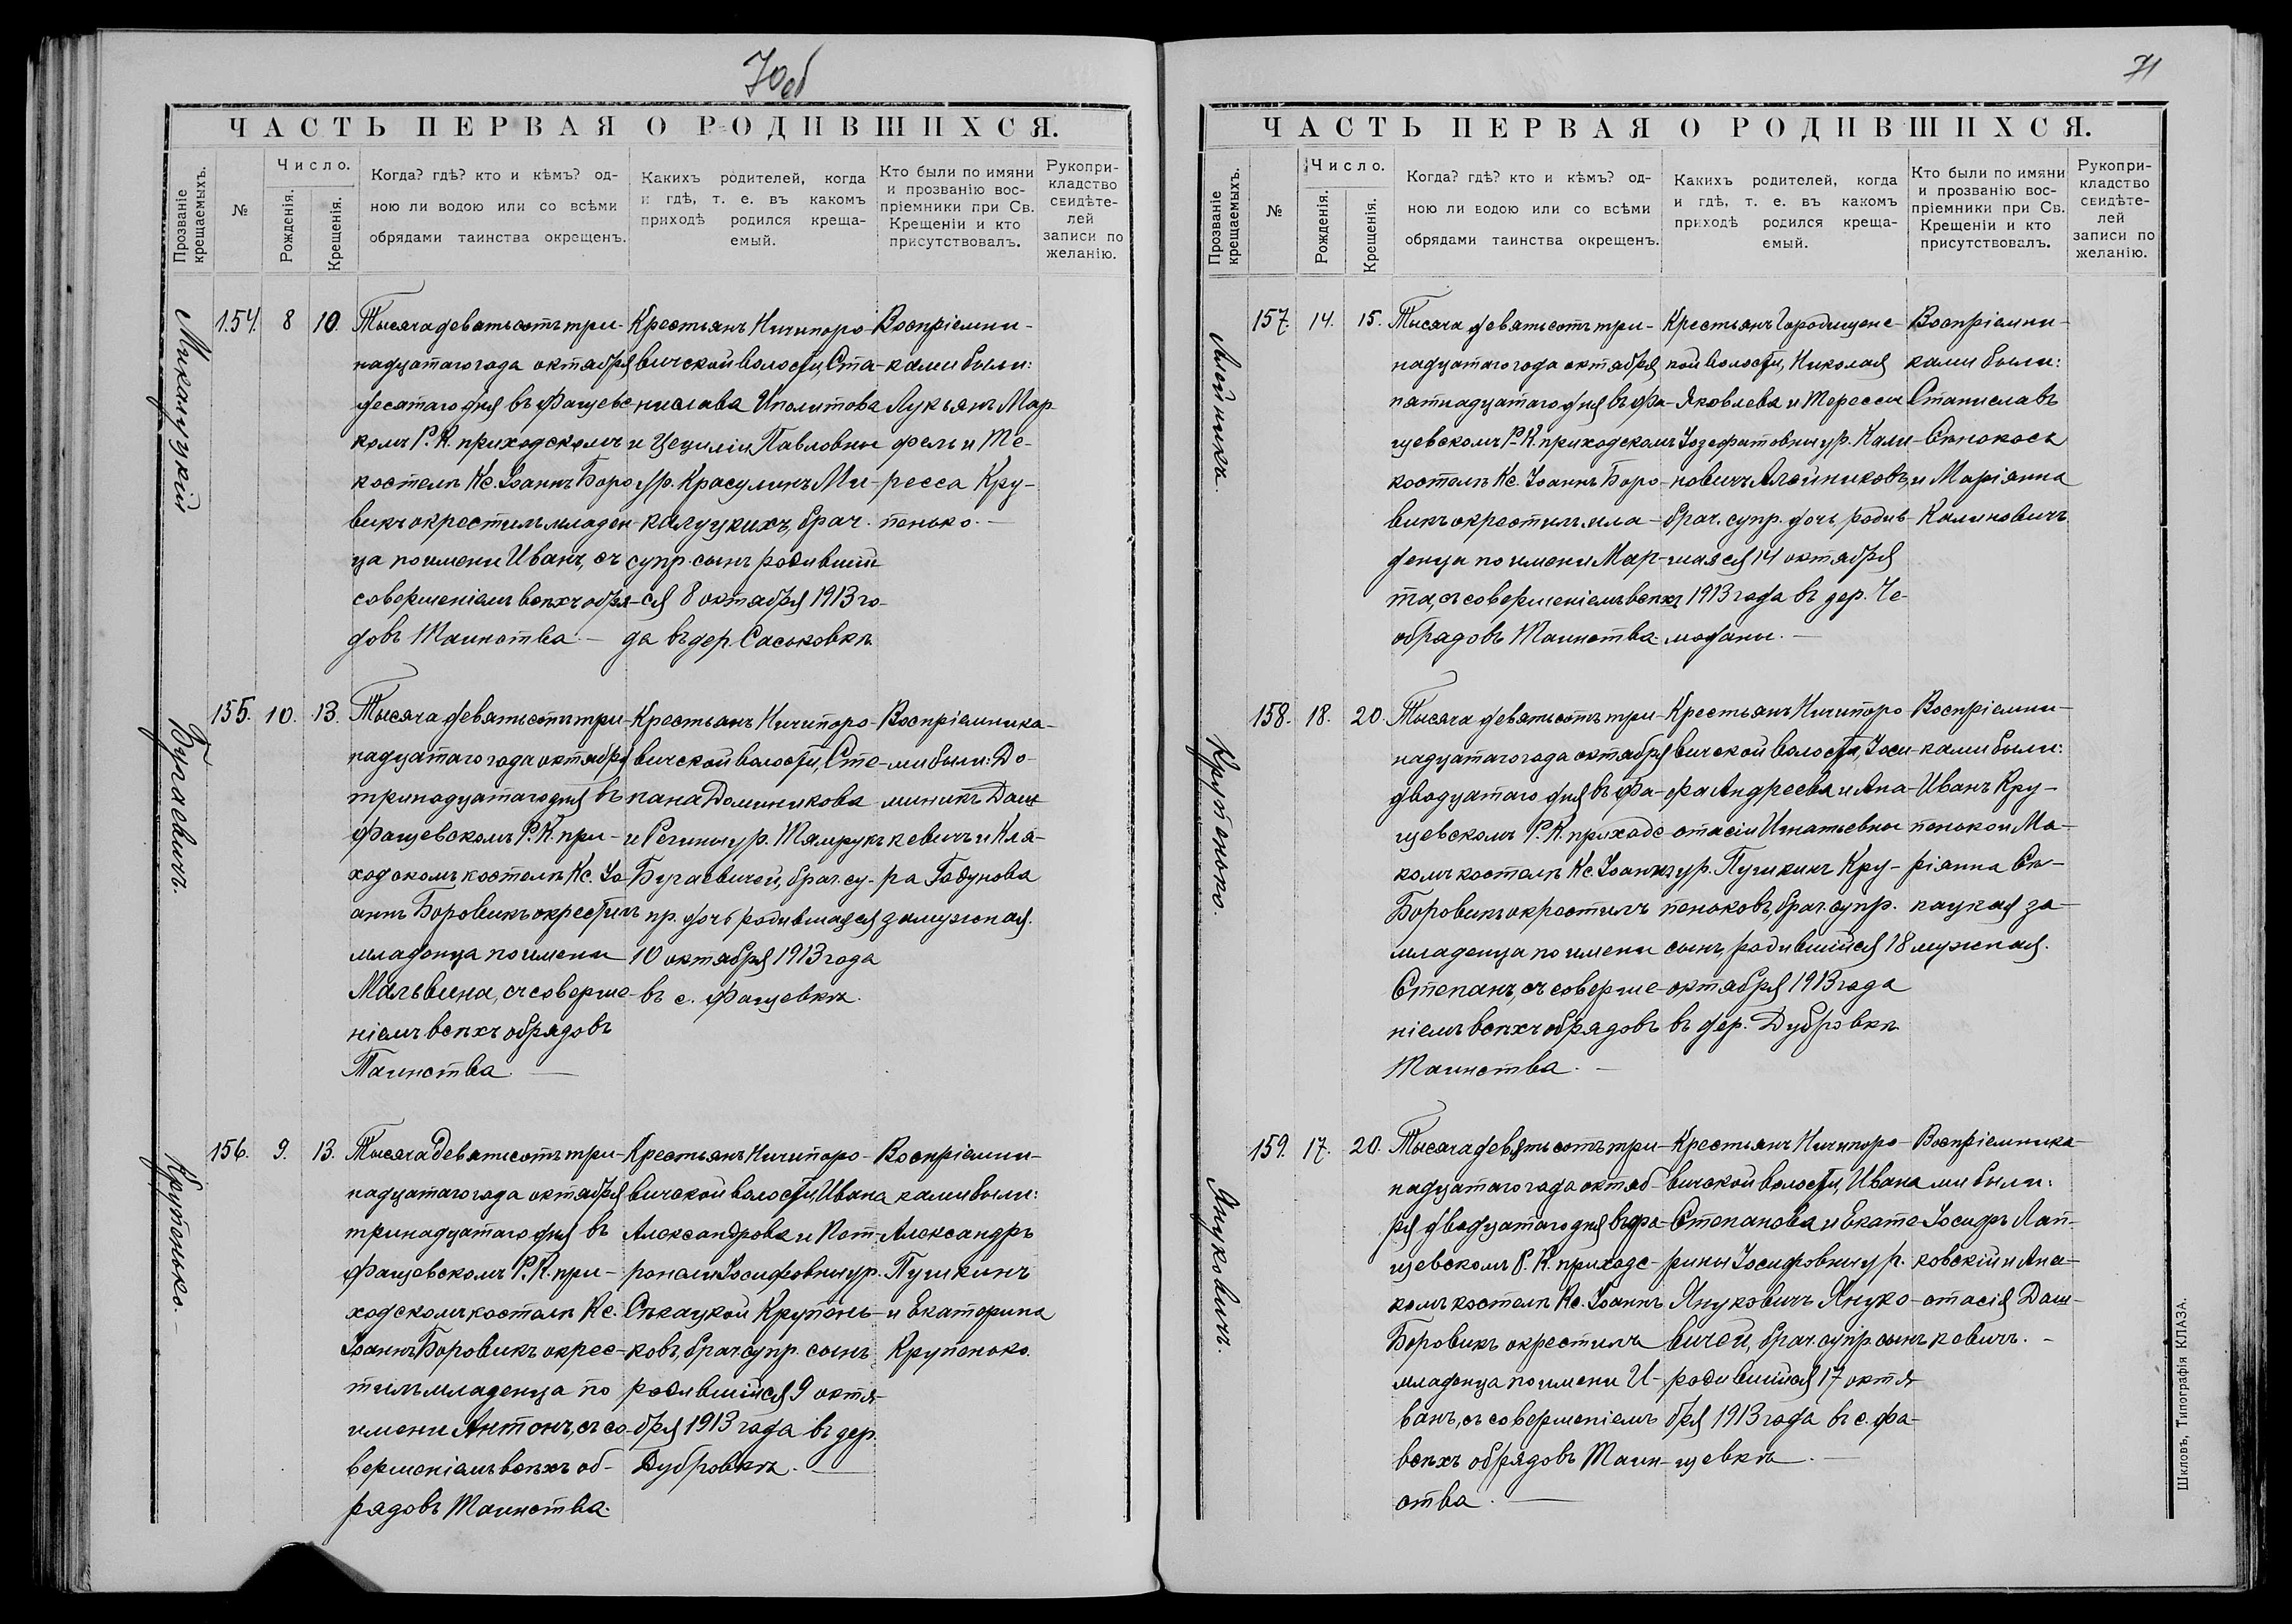 70об
ЧАСТЬ ПЕРВАЯ О РОДИВШИХСЯ.
Прозваніе крещаемыхъ.
№
Число.
Рожденія.
Крещенія.
Когда? гдѣ? кто и кѣмъ? од-
ною ли водою или со всѣми
обрядами таинства окрещенъ.
Какихъ родителей, когда
и гдѣ, т. е. въ какомъ
приходѣ родился креща-
емый.
Кто были по имяни
и прозванію вос-
пріемники при Св.
Крещеніи и кто
присутствовалъ.
Рукопри-
кладство
свидѣте-
лей
записи по
желанію.
Микалуцкій
154. 8 10.
Тысяча девятьсотъ три-
надцатаго года октября
десятаго дня въ Фащевс
комъ Р. К. приходскомъ
костелѣ Кс. Іоаннъ Боро
викъ окрестилъ младен-
ца по имени Иванъ, съ
совершеніемъ всѣхъ обря-
довъ Таинства. —
Крестьянъ Ничипоро-
вичской волости, Ста-
нислава Иполитова
и Цециліи Павловны
ур. Красулинъ Ми-
калуцкихъ, брач.
супр. сынъ родивший
ся 8 октября 1913 го-
да въ дер. Саськовкѣ
Воспріемни-
ками были:
Лукьянъ Мар
фель и Те-
ресса Кру-
пенько. —
Бугаевичъ.
155. 10. 13.
Тысяча девятьсотъ три-
надцатаго года октября
тринадцатаго дня въ
Фащевскомъ Р. К. при-
ходскомъ костелѣ Кс. Іо-
аннъ Боровикъ окрестилъ
младенца по имени
Мальвина, съ соверше-
ніемъ всѣхъ обрядовъ
Таинства. —
Крестьянъ Ничипоро-
вичской волости, Сте-
пана Доминикова
и Регины ур. Тамрукъ
Бугаевичей, брач. су-
пр. дочь родившаяся
10 октября 1913 года
въ с. Фащевкѣ.
Воспріемника-
ми были: До-
миникъ Даш
кевичъ и Кла-
ра Годунова
замужная.
Крупенько. —
156. 9. 13.
Тысяча девятьсотъ три-
надцатаго года октября
тринадцатаго дня въ
Фащевскомъ Р. К. при-
ходскомъ костелѣ Кс.
Іоаннъ Боровикъ окрес-
тилъ младенца по
имени Антонъ, съ со-
вершеніемъ всѣхъ об-
рядовъ Таинства.
Крестьянъ Ничипоро-
вичской волости, Ивана
Александрова и Пет-
ронели Іосифовны ур.
Сѣкацкой Крупень-
ковъ, брач. супр. сынъ
родившійся 9 октя-
бря 1913 года въ дер.
Дубровкѣ. —
Воспріемни-
ками были:
Александръ
Пушкинъ
и Екатерина
Крупенько.
71
ЧАСТЬ ПЕРВАЯ О РОДИВШИХСЯ.
Прозваніе крещаемыхъ.
№
Число.
Рожденія.
Крещенія.
Когда? гдѣ? кто и кѣмъ? од-
ною ли водою или со всѣми
обрядами таинства окрещенъ.
Какихъ родителей, когда
и гдѣ, т. е. въ какомъ
приходѣ родился креща-
емый.
Кто были по имяни
и прозванію вос-
пріемники при Св.
Крещеніи и кто
присутствовалъ.
Рукопри-
кладство
свидѣте-
лей
записи по
желанію.
157. 14. 15.
Тысяча девятьсотъ три-
надцатаго года октября
пятнадцатаго дня въ Фа-
щевскомъ Р. К. приходскомъ
костелѣ Кс. Іоаннъ Боро-
викъ окрестилъ мла-
денца по имени Мар-
та, съ совершеніемъ всѣхъ
обрядовъ Таинства.
Крестьянъ Городищенс-
кой волости, Николая
Яковлева и Терессы
Іозефатовны ур. Кали-
новичъ Алейниковъ,
брач. супр. дочь родив-
шаяся 14 октября
1913 года въ дер. Че-
моданы. —
Воспріемни-
ками были:
Станиславъ
Сѣнокосъ
и Маріанна
Калиновичъ
Крупенько.
158. 18. 20.
Тысяча девятьсотъ три-
надцатаго года октября
двадцатаго дня въ Фа-
щевскомъ Р. К. приходс
комъ костелѣ Кс. Іоаннъ
Боровикъ окрестилъ
младенца по имени
Степанъ, съ соверше-
ніемъ всѣхъ обрядовъ
Таинства. —
Крестьянъ Ничипоро
вичской волости, Іоси-
фа Андреева и Ана-
стасіи Игнатьевны
ур. Пушкинъ Кру-
пеньковъ, брач. супр.
сынъ, родившійся 18
октября 1913 года
въ дер. Дубровкѣ
Воспріемни-
ками были:
Иванъ Кру-
пенько и Ма-
ріанна Сѣ-
кацкая за-
мужная.
Януковичъ.
159. 17. 20.
Тысяча девятьсотъ три-
надцатаго года октяб-
ря двадцатаго дня въ Фа-
щевскомъ Р. К. приходс-
комъ костелѣ Кс. Іоаннъ
Боровикъ окрестилъ
младенца по имени И-
ванъ, съ совершеніемъ
всѣхъ обрядовъ Таин-
ства. —
Крестьянъ Ничипоро-
вичской волости, Ивана
Степанова и Екате-
рины Іосифовны ур.
Януковичъ Януко-
вичей, брач. супр. сынъ
родившійся 17 октя
бря 1913 года въ с. Фа-
щевкѣ. —
Воспріемника-
ми были:
Іосифъ Лап-
ковскій и Ана-
стасія Даш-
кевичъ. —
Шкловъ, Типографія КЛАЗА.